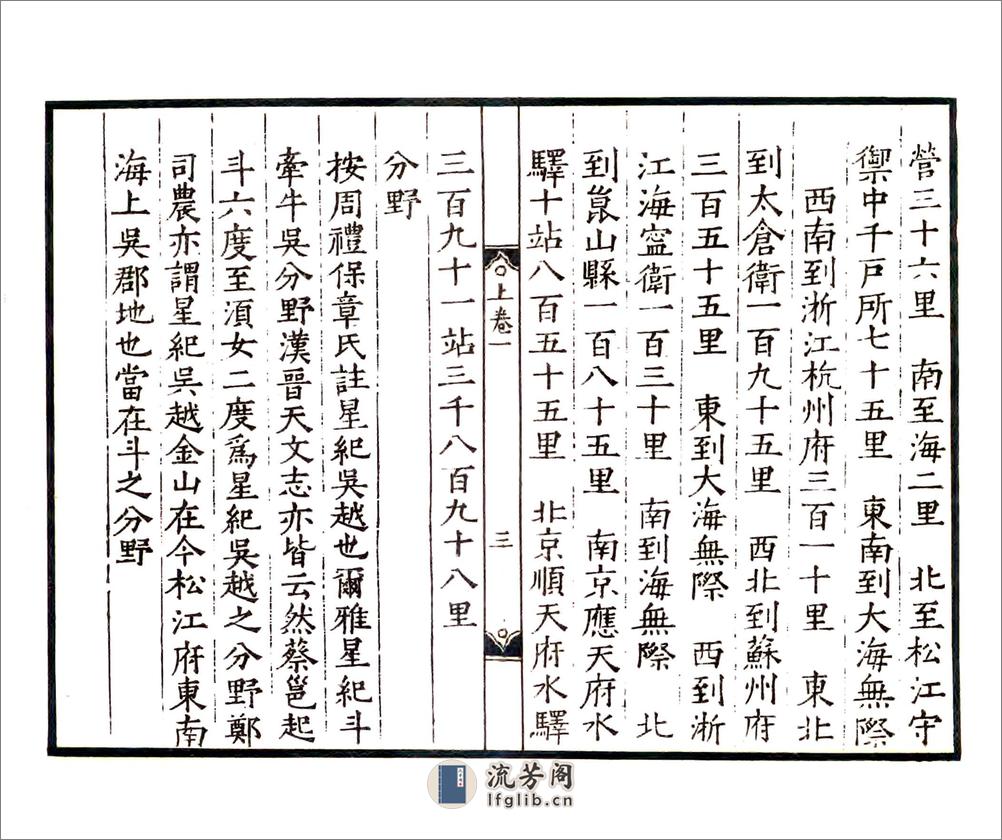 營三十六里　南至海二里　北至松江守
禦中千戸所七十五里　東南到大海無際
西南到浙江杭州府三百一十里　東北
到太倉衛一百九十五里　西北到蘇州府
三百五十五里　東到大海無際　西到浙
江海寍衛一百三十里　南到海無際　北
到崑山縣一百八十五里　南京應天府水
驛十站八百五十五里　北京順天府水驛
上卷一
三
三百九十一站三千八百九十八里
分野
按周禮保章氏註星紀吳越也爾雅星紀斗
牽牛吳分野漢晉天文志亦皆云然蔡邕起
斗六度至須女二度爲星紀吳越之分野鄭
司農亦謂星紀吳越金山在今松江府東南
海上吳郡地也當在斗之分野
流芳阁
lfglib.cn